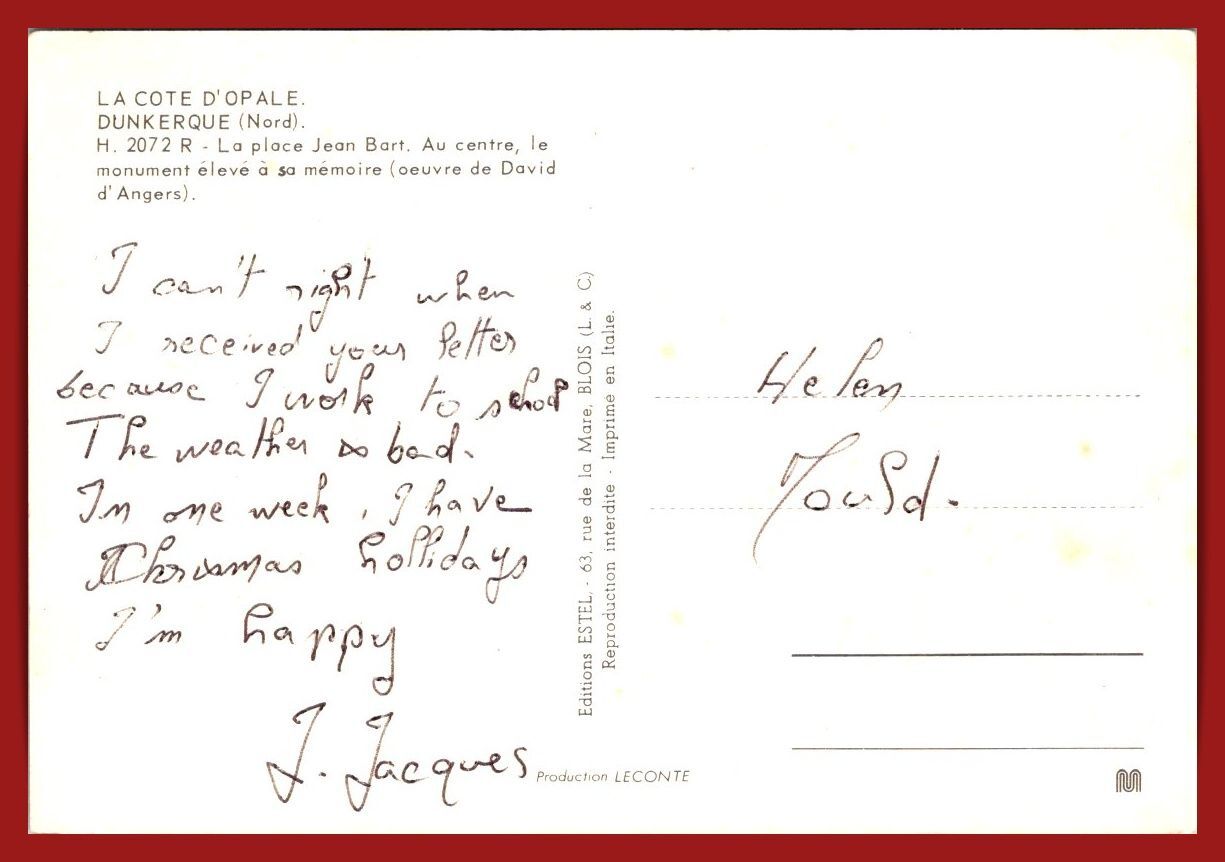 LA COTE D'OPALE.
DUNKERQUE (Nord).
H. 2072 R - La place Jean Bart. Au centre, le
monument élevé à sa mémoire (oeuvre de David
d'Angers).
I can't right when
I received your letter
because I work to school
The weather is bad.
In one week, I have
Chrismas hollidays
I'm happy
J. Jacques
Editions ESTEL, - 63, rue de la Mare, BLOIS (L. & C)
Reproduction interdite - Imprime en Italie.
Production LECONTE
Helen
Mould.
M